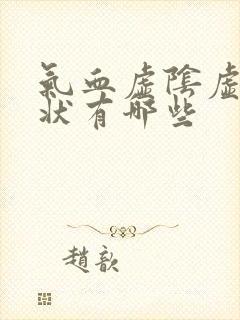 氣血虛陰虛
狀有哪些
趙歆